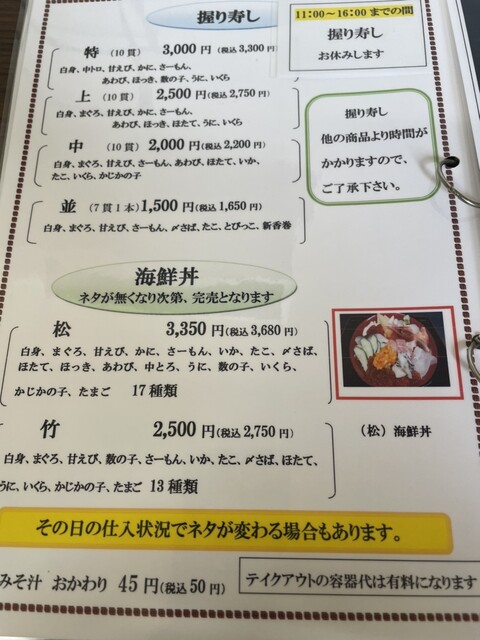 握り寿し
11:00～16:00 までの間
握り寿し
お休みします
特 (10貫) 3,000 円 (税込 3,300 円)
白身、中トロ、甘えび、かに、さーもん、
あわび、ほっき、数の子、うに、いくら
上 (10貫) 2,500 円(税込 2,750 円)
白身、まぐろ、甘えび、かに、さーもん、
あわび、ほっき、ほたて、うに、いくら
中 (10貫) 2,000 円(税込 2,200 円)
白身、まぐろ、甘えび、さーもん、あわび、ほたて、いか、
たこ、いくら、かじかの子
並 (7貫1本) 1,500 円(税込 1,650 円)
白身、まぐろ、甘えび、さーもん、〆さば、たこ、とびっこ、新香巻
握り寿し
他の商品より時間が
かかりますので、
ご了承下さい。
海鮮丼
ネタが無くなり次第、完売となります
松 3,350 円(税込 3,680 円)
白身、まぐろ、甘えび、かに、さーもん、いか、たこ、〆さば、
ほたて、ほっき、あわび、中とろ、うに、数の子、いくら、
かじかの子、たまご 17種類
竹 2,500 円(税込 2,750 円)
白身、まぐろ、甘えび、数の子、さーもん、いか、たこ、〆さば、ほたて、
うに、いくら、かじかの子、たまご 13種類
(松) 海鮮丼
その日の仕入状況でネタが変わる場合もあります。
みそ汁 おかわり 45 円(税込 50 円)
テイクアウトの容器代は有料になります